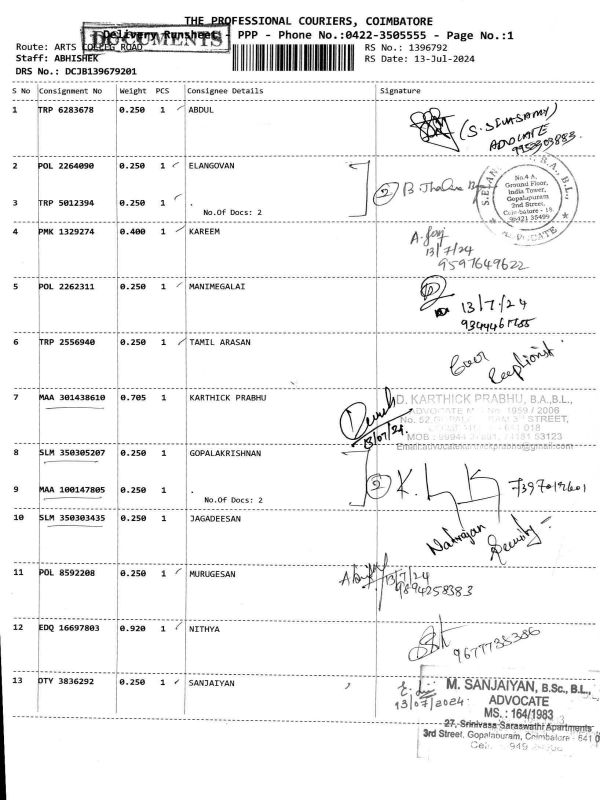 THE PROFESSIONAL COURIERS, COIMBATORE
DOCUMENTS
Delivery Runsheet - PPP - Phone No.:0422-3505555 - Page No.:1
Route: ARTS COLLEG ROAD RS No.: 1396792
Staff: ABHISHEK RS Date: 13-Jul-2024
DRS No.: DCJB139679201
S No Consignment No Weight PCS Consignee Details Signature
1 TRP 6283678 0.250 1 ABDUL
(S. SIVASAMY)
ADVOCATE
2 POL 2264090 0.250 1 ELANGOVAN
3 TRP 5012394 0.250 1 .
No.Of Docs: 2
2
No.4 A,
Ground Floor,
India Tower,
Gopalapuram
2nd Street,
Coimbatore - 18.
ADVOCATE
4 PMK 1329274 0.400 1 KAREEM
13/7/24
9597649622
5 POL 2262311 0.250 1 MANIMEGALAI
13/7/24
6 TRP 2556940 0.250 1 TAMIL ARASAN
7 MAA 301438610 0.705 1 KARTHICK PRABHU
13/07/24.
D. KARTHICK PRABHU, B.A.,B.L.,
8 SLM 350305207 0.250 1 GOPALAKRISHNAN
9 MAA 100147805 0.250 1 .
No.Of Docs: 2
2
10 SLM 350303435 0.250 1 JAGADEESAN
Natrajan
Security
11 POL 8592208 0.250 1 MURUGESAN
13/7/24
9894258383
12 EDQ 16697803 0.920 1 NITHYA
9677738386
13 DTY 3836292 0.250 1 SANJAIYAN
13/07/2024
M. SANJAIYAN, B.Sc., B.L.,
ADVOCATE
MS.: 164/1983
27, Srinivasa Saraswathi Apartments
3rd Street, Gopalapuram, Coimbatore - 641 0